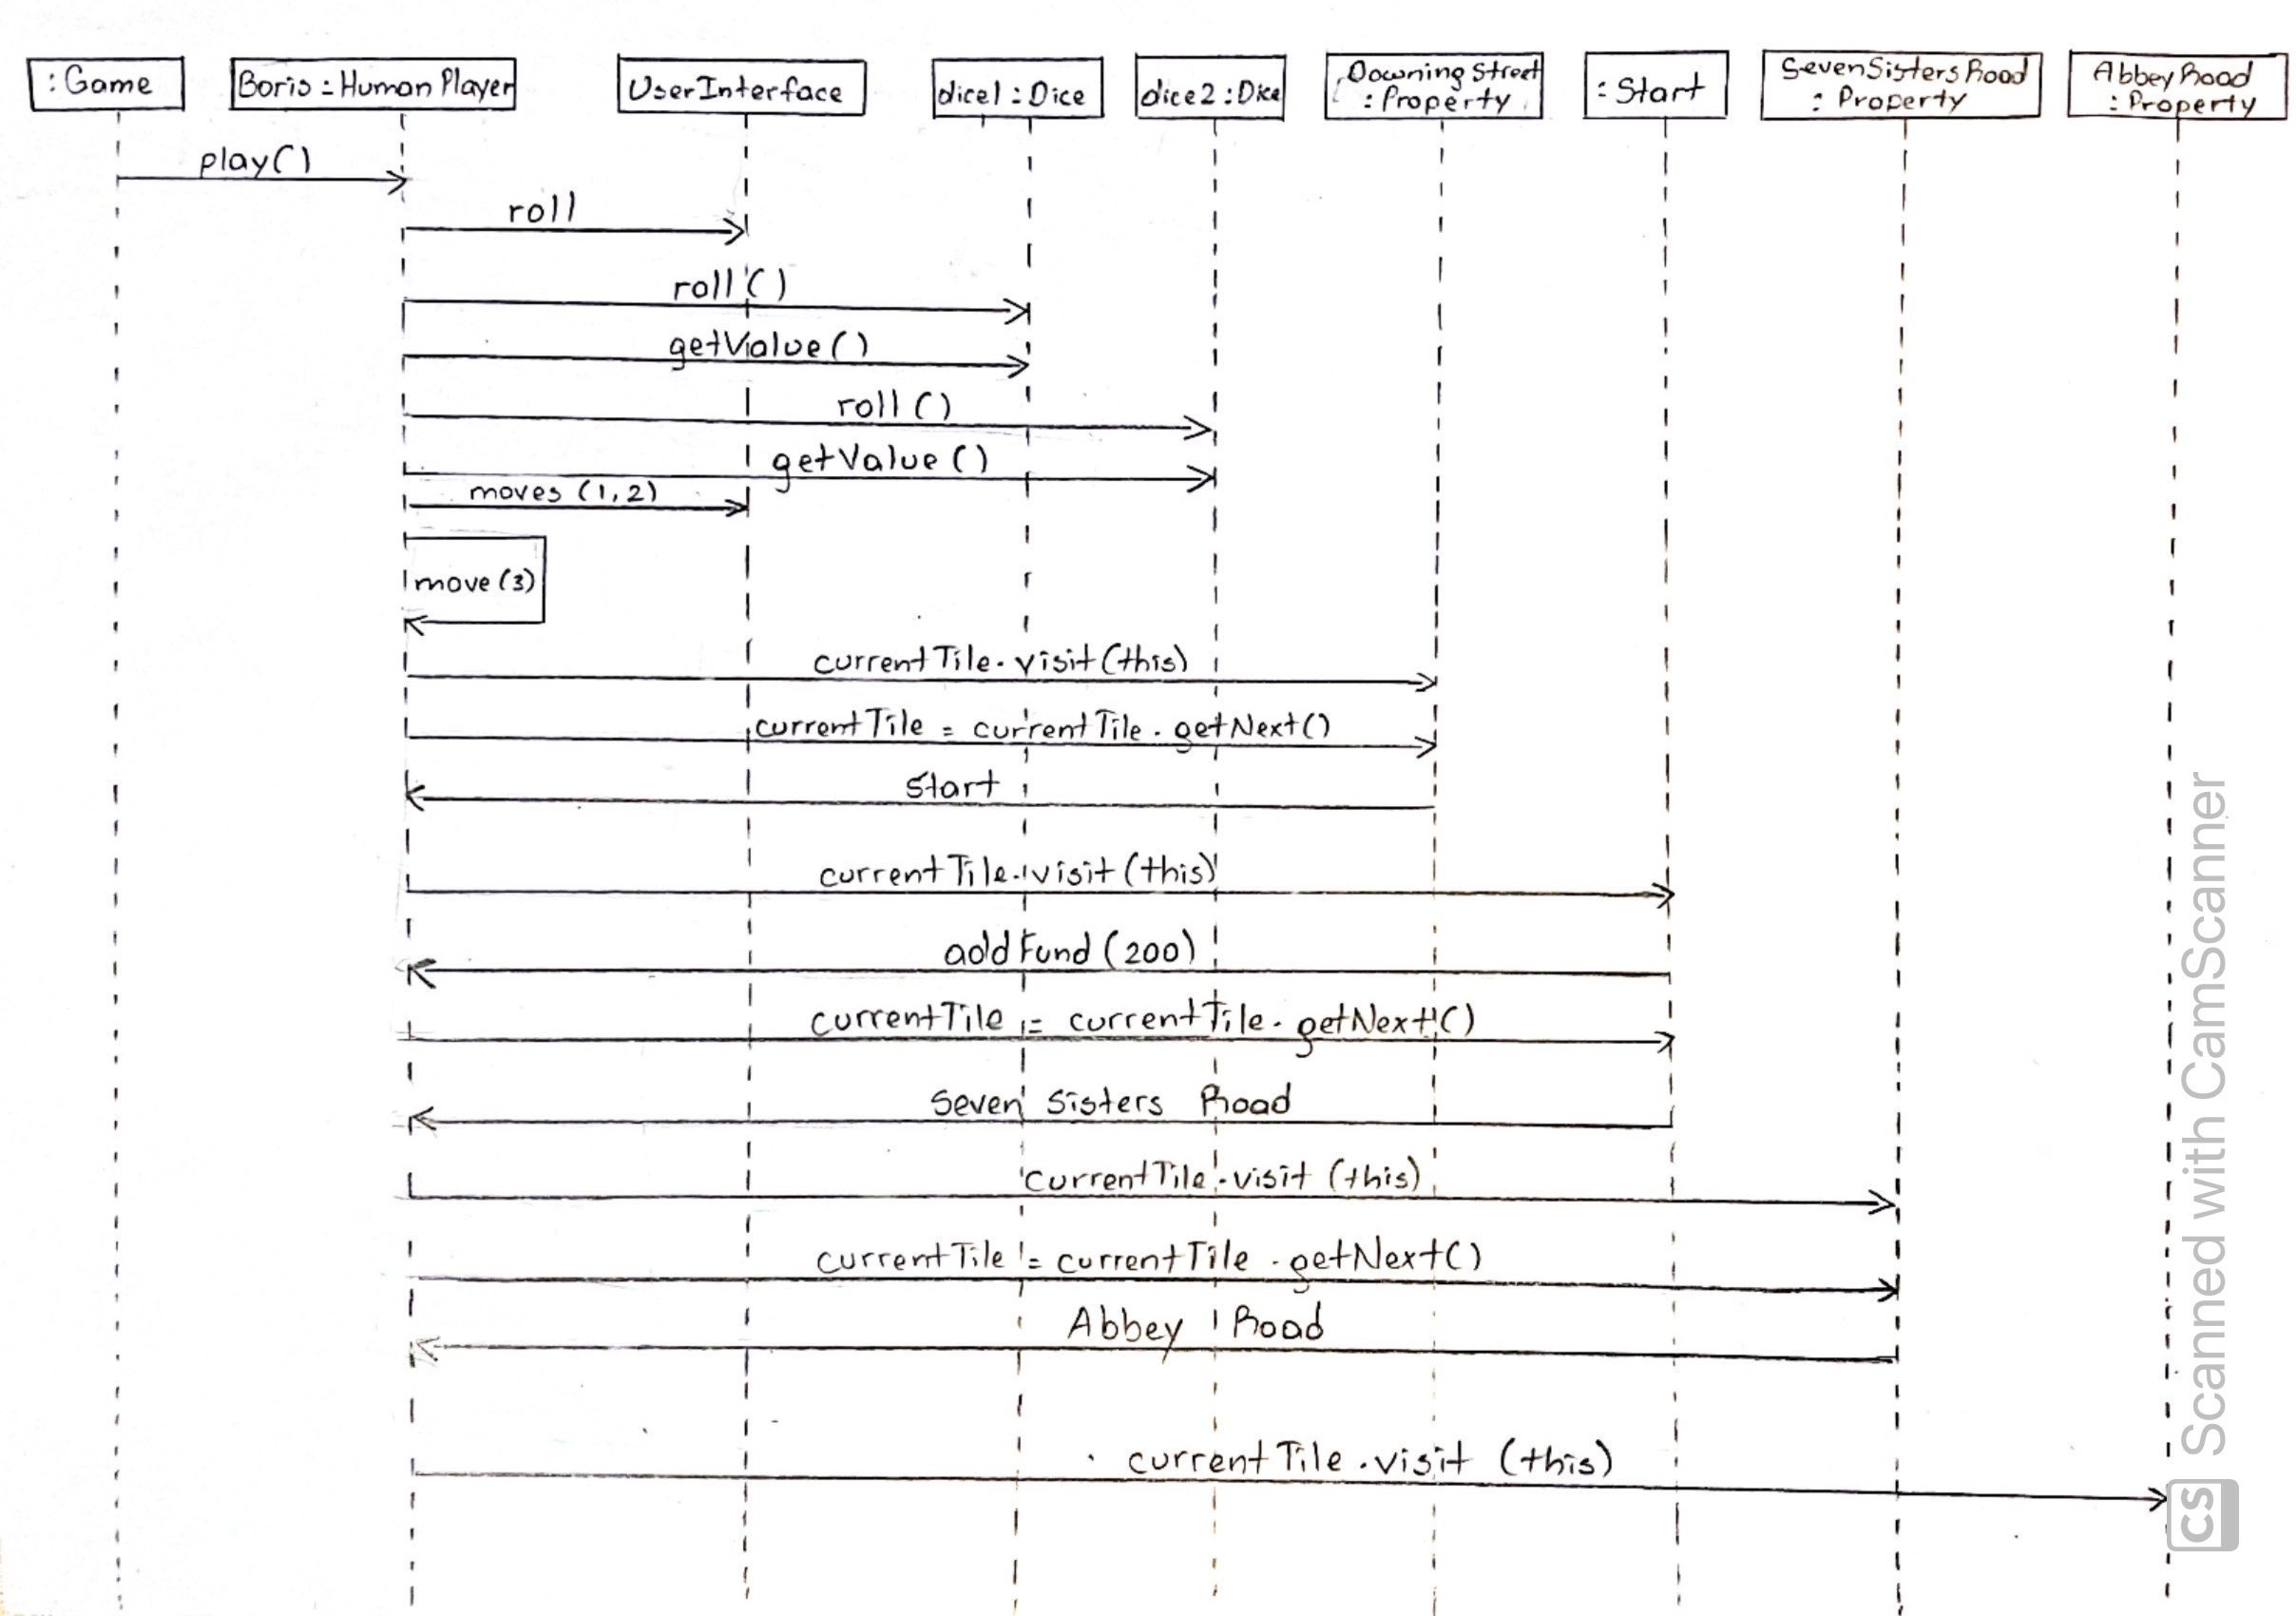 :Game
Boris:HumanPlayer
UserInterface
dice1:Dice
dice2:Dice
Downing Street
:Property
:Start
SevenSistersRoad
:Property
AbbeyRoad
:Property
play()
roll
roll()
getValue()
roll()
getValue()
moves (1,2)
move(3)
currentTile.visit(this)
currentTile = currentTile.getNext()
Start
currentTile.visit(this)
addFund(200)
currentTile = currentTile.getNext()
Seven Sisters Road
currentTile.visit (this)
currentTile = currentTile.getNext()
Abbey Road
currentTile.visit (this)
CS Scanned with CamScanner